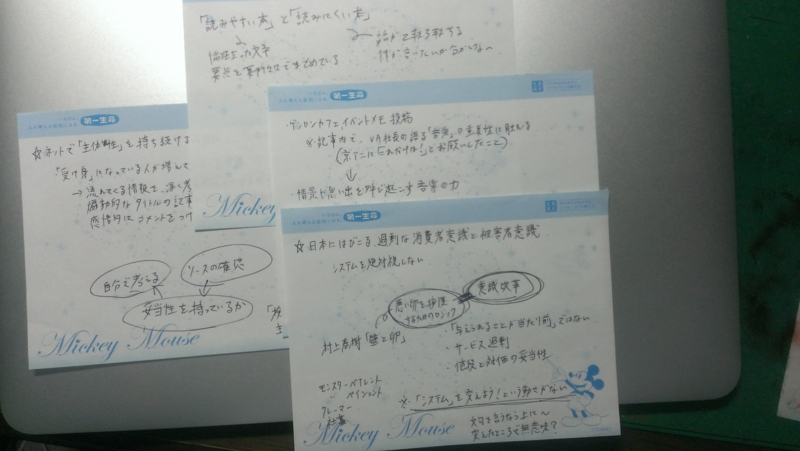 「読みやすい本」と「読みにくい本」
話が転々とする
何が言いたいか分からない
要点を
まとめている
第一生命
☆ネットで「主体性」を持ち続ける
「受け身」になっている人が増えて
→流れてくる情報を、深く考
扇動的なタイトルの記事
感情的にコメントをつけ
自分で考える
ソースの確認
妥当性を持っているか
Mickey Mouse
Mickey
第一生命
カフェ、イベントメモ投稿
※記事内で、VA社長の語る「音楽」の重要性に触れる
(京アニに「これだけは!」とお願いしたこと)
↓
・情景や思い出を呼び起こす音楽の力
第一生命
☆日本にはびこる、過剰な消費者意識と被害者意識
システムを絶対視しない
悪い卵を擁護するためのロジック
意識改革
村上春樹「壁と卵」
「与えられることが当たり前」ではない
・サービス過剰
・値段と対価の妥当性
モンスターペアレント
ペイシェント
クレーマー
※「システム」を変えよう!という動きがない
文句を言うなら上に〜
変えたところで無意味?
Mickey Mouse